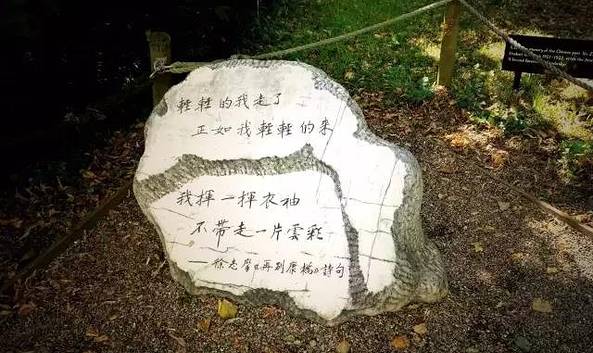 輕輕的我走了
正如我輕輕的來
我揮一揮衣袖
不帶走一片雲彩
——徐志摩《再別康橋》詩句
memory of the Chinese poet